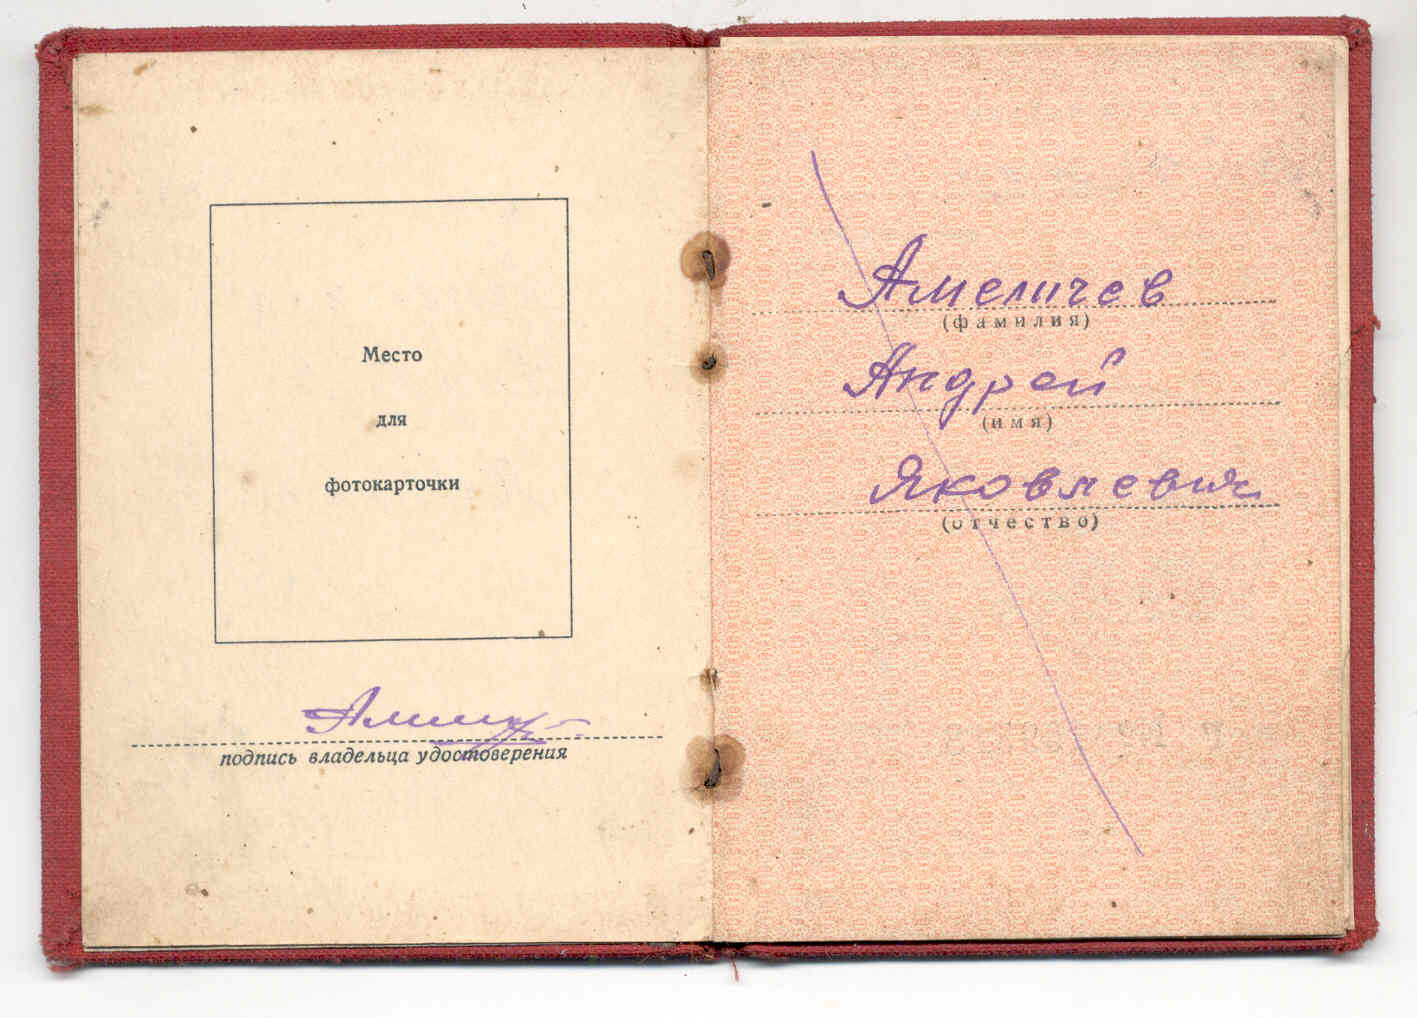 Место
для
фотокарточки
подпись владельца удостоверения
Амеличев
(фамилия)
Андрей
(имя)
Яковлевич
(отчество)